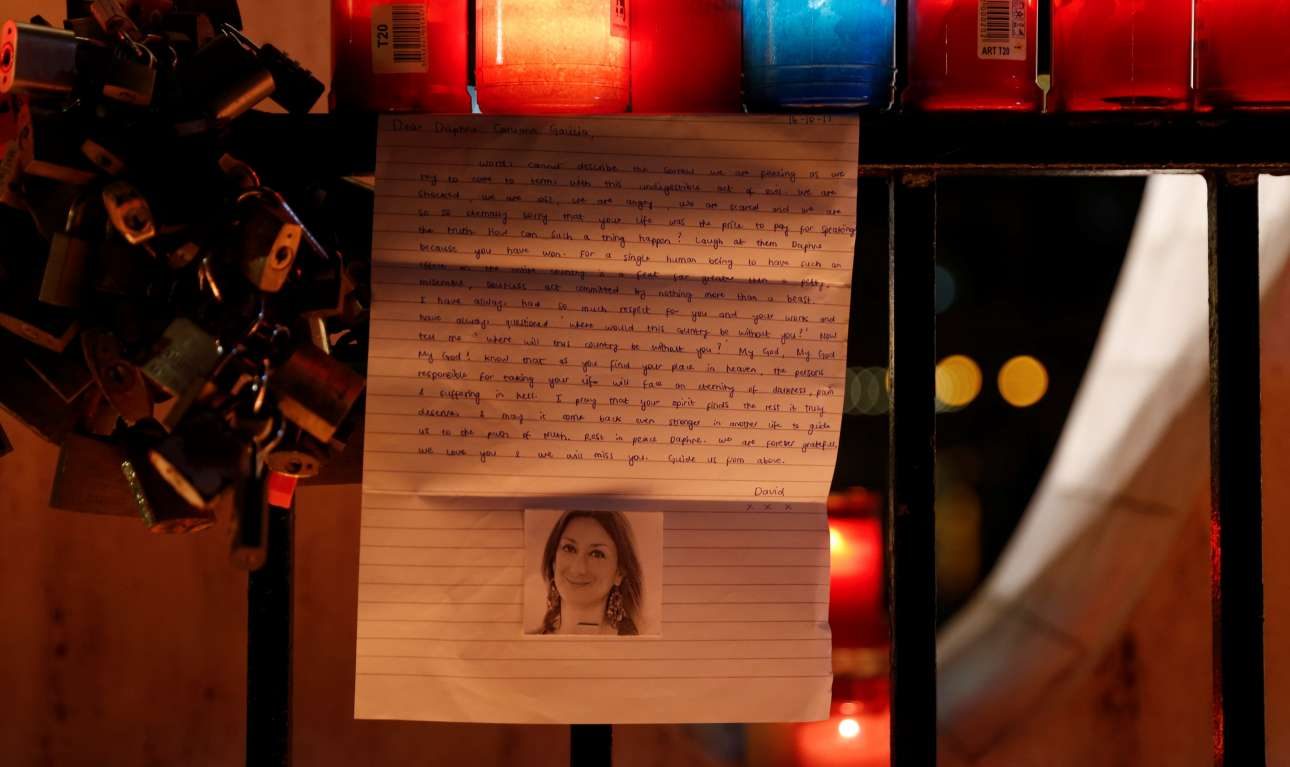 T20
ART T20
16-10-17
Dear Daphne Caruana Galizia,
Words cannot describe the sorrow we are feeling as we
try to come to terms with this indigestible act of evil. We are
shocked, we are lost, we are angry, we are scared and we are
so so eternally sorry that your life was the price to pay for speaking
the truth. How can such a thing happen? Laugh at them Daphne
because you have won. For a single human being to have such an
effect on the entire country is a feat far greater than a petty,
miserable, soulless act committed by nothing more than a beast.
I have always had so much respect for you and your work and
have always questioned 'where would this country be without you?' Now
tell me 'where will this country be without you?' My God, My God
My God! Know that as you find your place in heaven, the persons
responsible for taking your life will face an eternity of darkness, pain
& suffering in hell. I pray that your spirit finds the rest it truly
deserves & may it come back even stronger in another life to guide
us to the path of truth. Rest in peace Daphne. We are forever grateful,
we love you & we will miss you. Guide us from above.
David
x x x